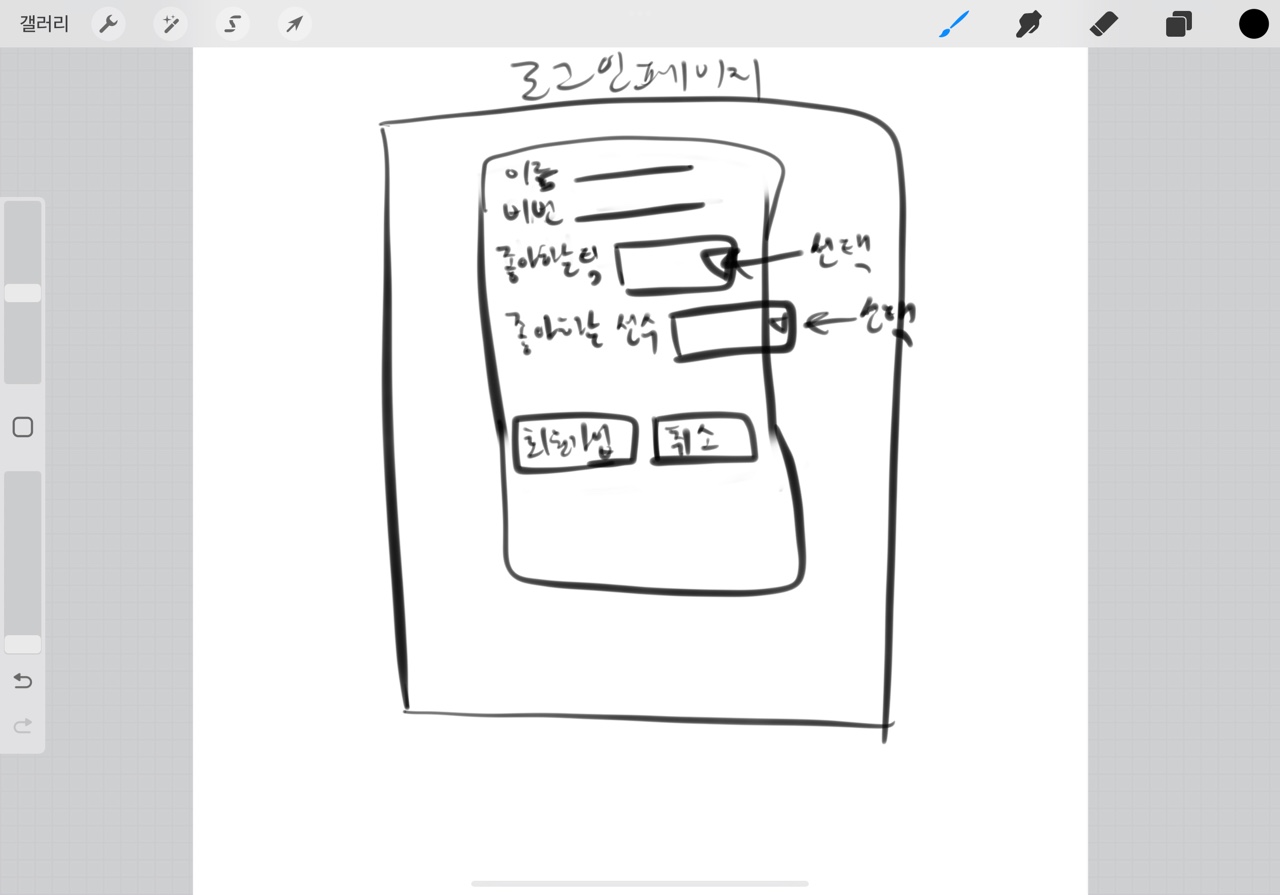 갤러리
로그인페이지
이름
비번
좋아하는팀
선택
좋아하는 선수
선택
회원가입
취소